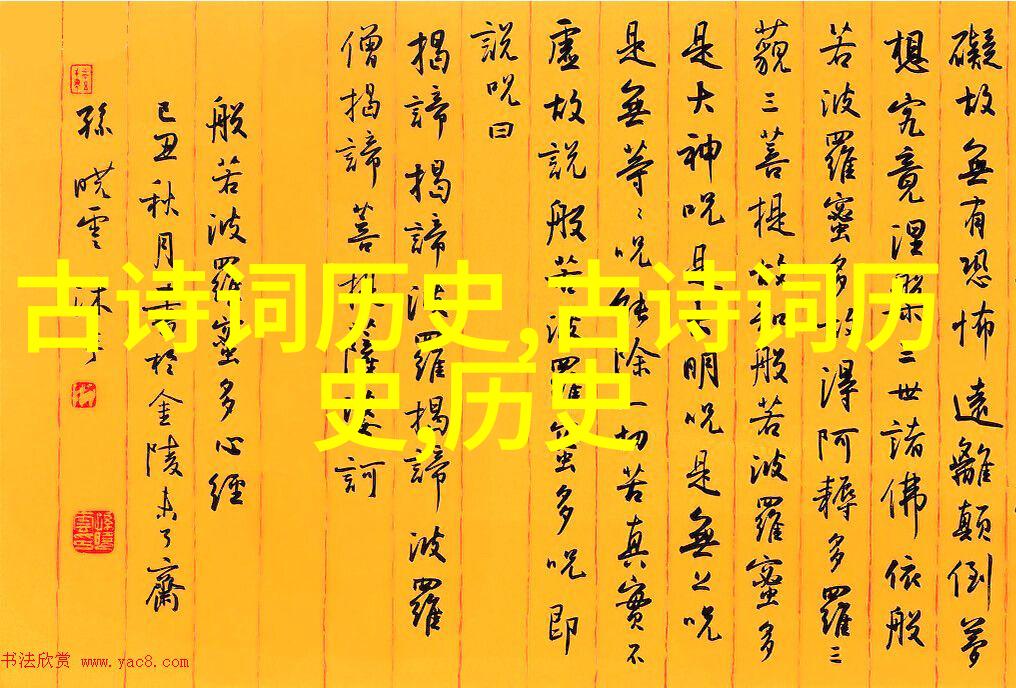 礙故無有恐怖遠離顛倒夢
想究竟涅槃三世諸佛依般
若波羅蜜多故得阿耨多羅三
藐三菩提故知般若波羅蜜多
是大神咒是大明咒是無上咒
是無等〻咒能除一切苦真實不
虛故說般若波羅蜜多咒即
說咒曰
揭諦揭諦波羅揭諦波羅
僧揭諦菩提薩婆訶
般若波羅蜜多心經
己丑秋月書於金陵未了齋
孫曉雲沐手
古诗词历史,古诗词历
史,历史
书法欣赏 www.yac8.com